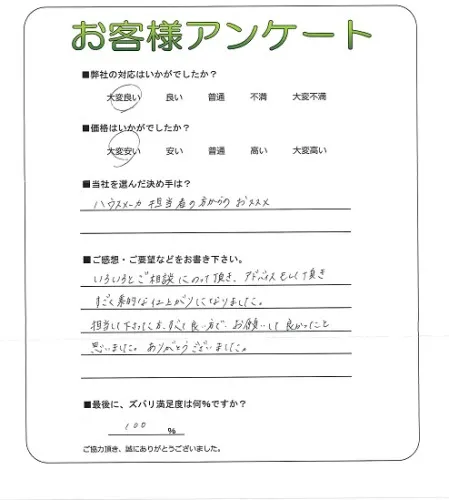 お客様アンケート
■弊社の対応はいかがでしたか？
大変良い 良い 普通 不満 大変不満
■価格はいかがでしたか？
大変安い 安い 普通 高い 大変高い
■当社を選んだ決め手は？
ハウスメーカ 担当者の方からの おススメ
■ご感想・ご要望などをお書き下さい。
いろいろとご相談にのって頂き、アドバイスもして頂き
すごく素的な仕上がりになりました。
担当して下さった方、すべて良い方で、お願いして良かったこと
思いました。ありがとうございました。
■最後に、ズバリ満足度は何%ですか？
100 %
ご協力頂き、誠にありがとうございました。